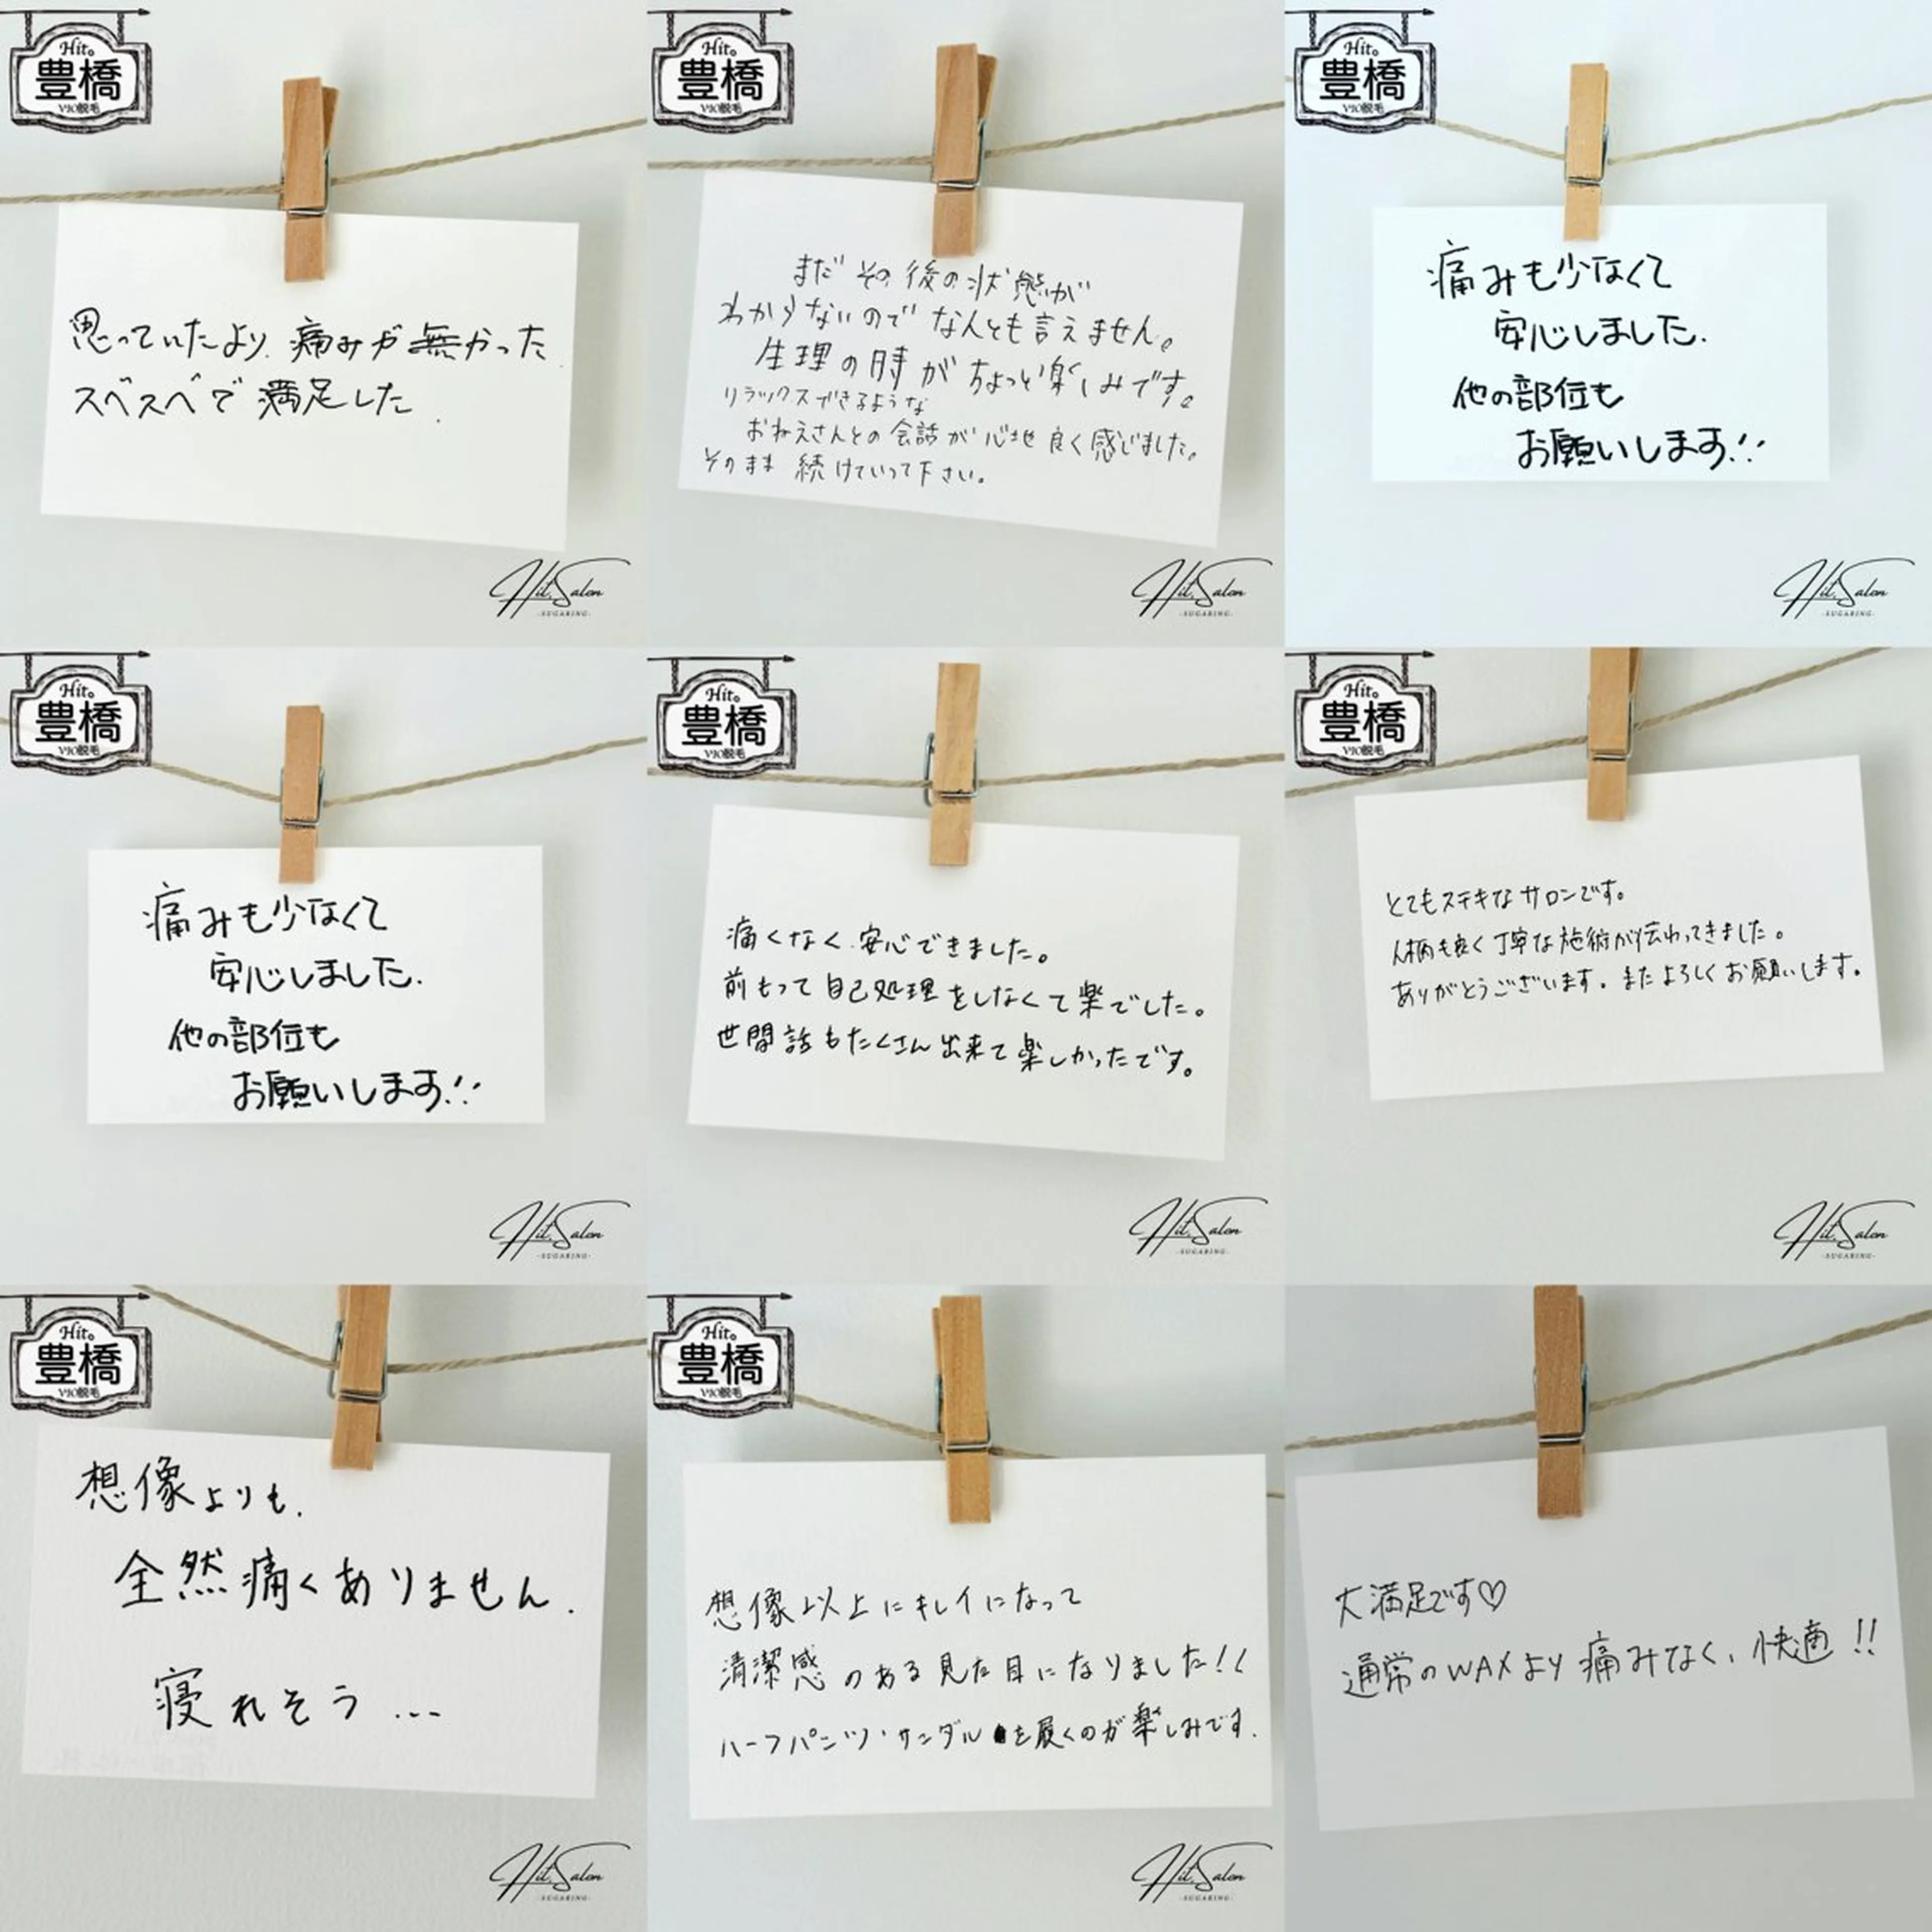 Hit。
豊橋
VIO脱毛
思っていたより、痛みが無かった
スベスベで満足した.
Hit. Salon
-SUGARING-
Hit。
豊橋
VIO脱毛
まだその後の状態が
わからないのでなんとも言えません。
生理の時がちょっと楽しみです。
リラックスできるような
おねえさんとの会話が心地良く感じました。
そのまま続けていって下さい。
Hit. Salon
-SUGARING-
Hit。
豊橋
VIO脱毛
痛みも少なくて
安心しました.
他の部位も
お願いします!!
Hit. Salon
-SUGARING-
Hit。
豊橋
VIO脱毛
痛みも少なくて
安心しました.
他の部位も
お願いします!!
Hit. Salon
-SUGARING-
Hit。
豊橋
VIO脱毛
痛くなく、安心できました。
前もって自己処理をしなくて楽でした。
世間話もたくさん出来て楽しかったです。
Hit. Salon
-SUGARING-
Hit。
豊橋
VIO脱毛
とてもステキなサロンです。
人柄も良く丁寧な施術が伝わってきました。
ありがとうございます。またよろしくお願いします。
Hit. Salon
-SUGARING-
Hit。
豊橋
VIO脱毛
想像よりも.
全然痛くありません.
寝れそう...
Hit. Salon
-SUGARING-
Hit。
豊橋
VIO脱毛
想像以上にキレイになって
清潔感のある見た目になりました!!
ハーフパンツ・サンダルを履くのが楽しみです.
Hit. Salon
-SUGARING-
大満足です♡
通常のWAXより痛みなく、快適!!